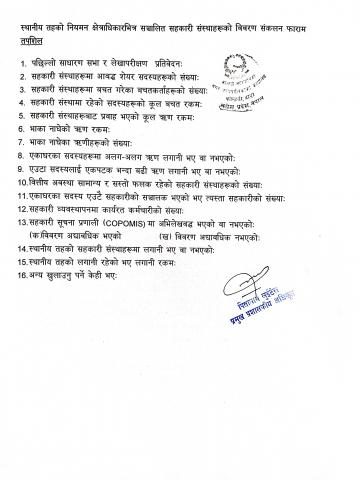 स्थानीय तहको नियमन क्षेत्राधिकारभित्र सञ्चालित सहकारी संस्थाहरूको विवरण संकलन फाराम
तपशिल
1. पछिल्लो साधारण सभा र लेखापरीक्षण प्रतिवेदनः
2. सहकारी संस्थाहरूमा आवद्ध शेयर सदस्यहरूको संख्याः
3. सहकारी संस्थाहरूमा बचत गरेका बचतकर्ताहरूको संख्याः
4. सहकारी संस्थामा रहेको सदस्यहरूको कूल बचत रकमः
5. सहकारी संस्थाहरूबाट प्रवाह भएको कूल ऋण रकमः
6. भाका नाघेको ऋण रकमः
7. भाका नाघेका ऋणीहरूको संख्याः
8. एकाघरका सदस्यहरूमा अलग-अलग ऋण लगानी भए वा नभएकोः
9. एउटा सदस्यलाई एकपटक भन्दा बढी ऋण लगानी भए वा नभएकोः
10. वित्तीय अवस्था सामान्य र सस्तो फलक रहेको सहकारी संस्थाहरूको संख्याः
11. एकाघरका सदस्य एउटै सहकारीको सञ्चालक भएको भए त्यस्ता सहकारीको संख्याः
12. सहकारी व्यवस्थापनमा कार्यरत कर्मचारीको संख्याः
13. सहकारी सूचना प्रणाली (COPOMIS) मा अभिलेखबद्ध भएको वा नभएकोः
(क)विवरण अद्यावधिक भएको (ख) विवरण अद्यावधिक नभएकोः
14. स्थानीय तहको सहकारी संस्थाहरूमा लगानी भए वा नभएकोः
15. स्थानीय तहको लगानी रहेको भए लगानी रकमः
16. अन्य खुलाउनु पर्ने केही भएः
प्रमुख प्रशासकीय अधिकृत